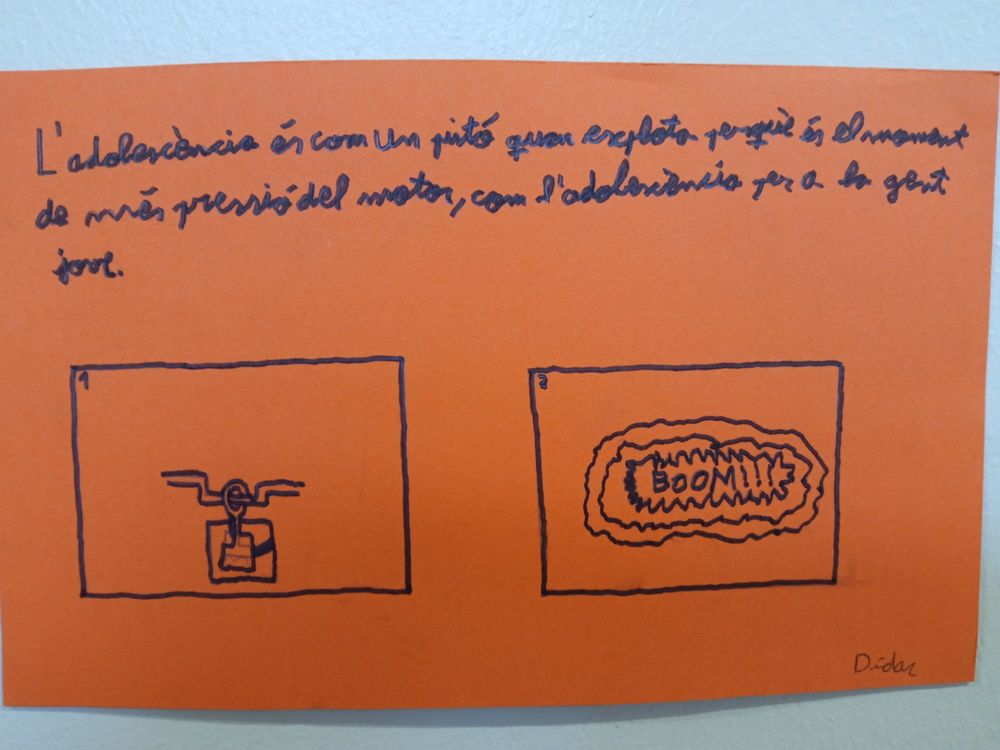 L'adolescència és com un pistó quan explota perquè és el moment
de més pressió del motor, com l'adolescència per a la gent
jove.
1
2
BOOM!!!
Dídac